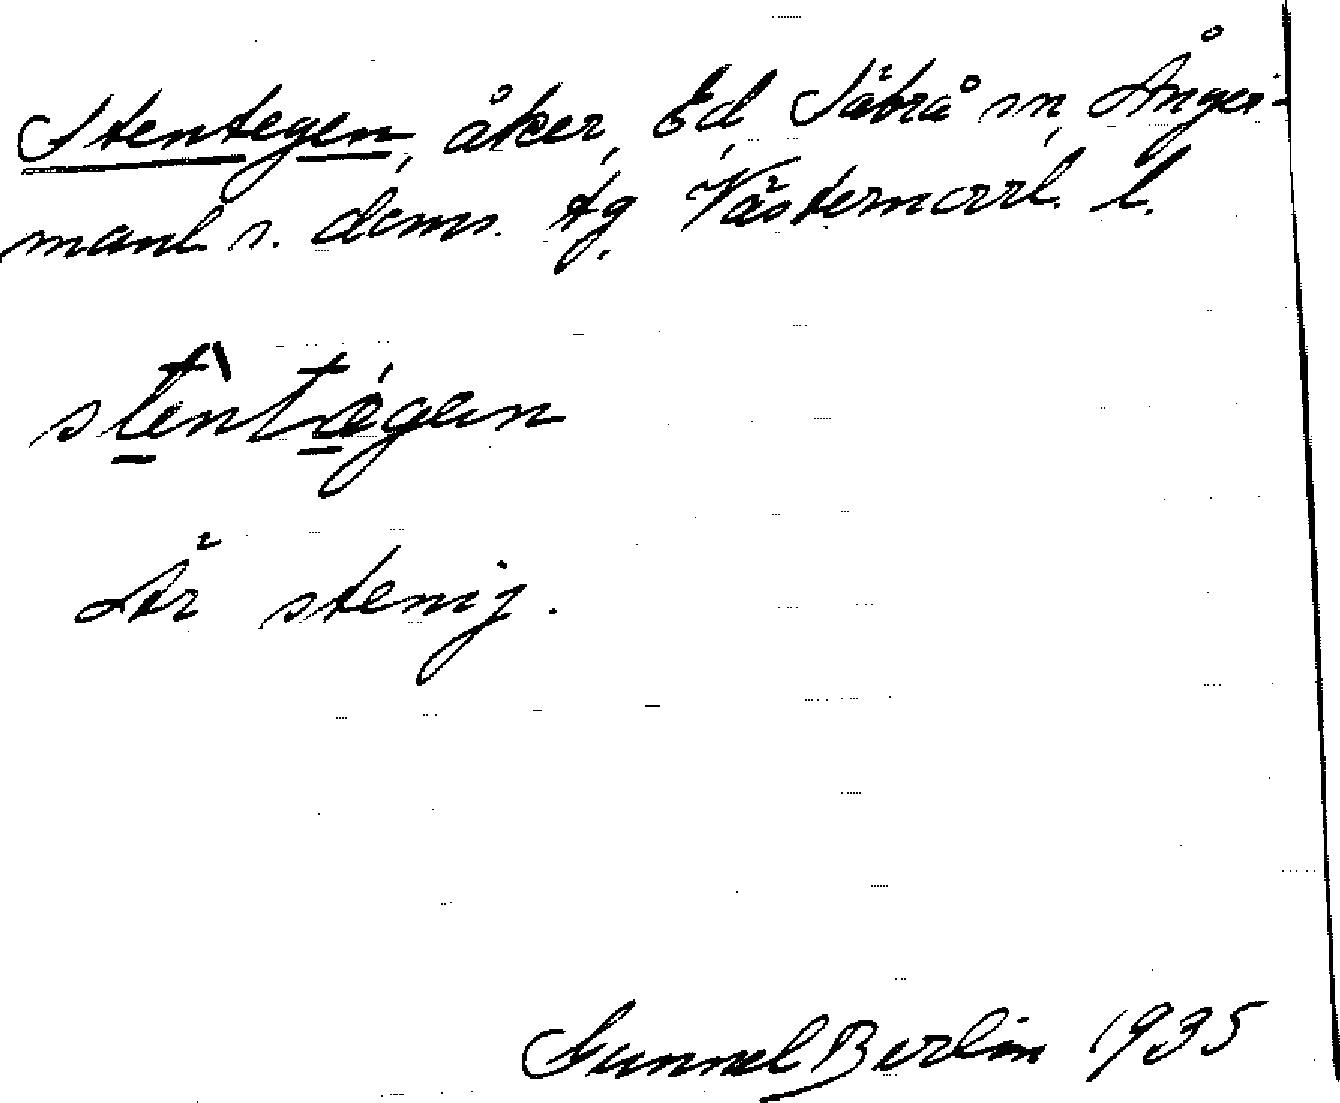 Stentegen, åker, Ed, Säbrå sn, Ånger-
manl s. doms. tg. Västernorrl. l.
stèntǽgen
Är stenig.
Gunnel Berlin 1935